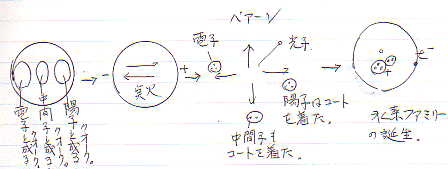 ペアーン
電子
光子
陽子はコート
を着た。
中間子も
コートを着た。
電子と成るクオーク。
中間子と成るクオーク。
陽子と成るクオーク。
－
＋
炎火
－
＋
水素ファミリー
の誕生。